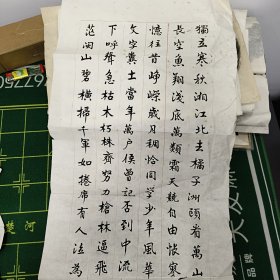 獨立寒秋湘江北去橘子洲頭看萬山
長空魚翔淺底萬類霜天競自由悵寥
憶往昔崢嶸歲月稠恰同學少年風華
文字糞土當年萬戶侯曾記否到中流
下呼聲急枯木朽株齊努力槍林逼飛
茫閩山碧橫掃千軍如捲席有人泣為
楚河
品牌